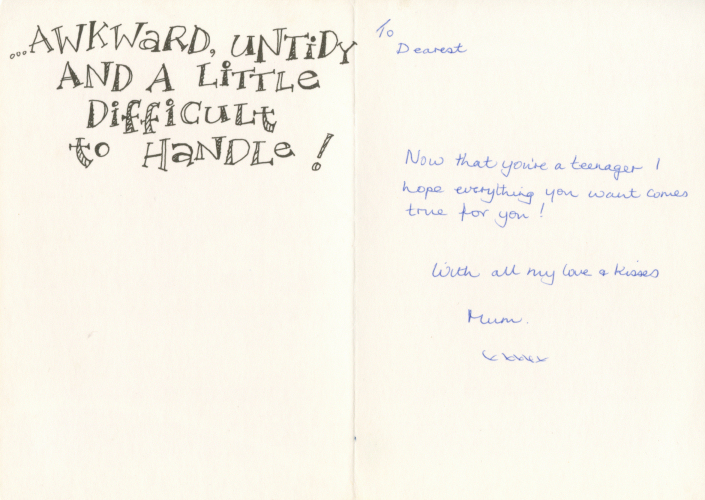 ...AWKWARD, UNTIDY
AND A LITTLE
DIFFICULT
to HANDLE!
To
Dearest
Now that you're a teenager I
hope everything you want comes
true for you!
With all my love & kisses
Mum.
xxxxx